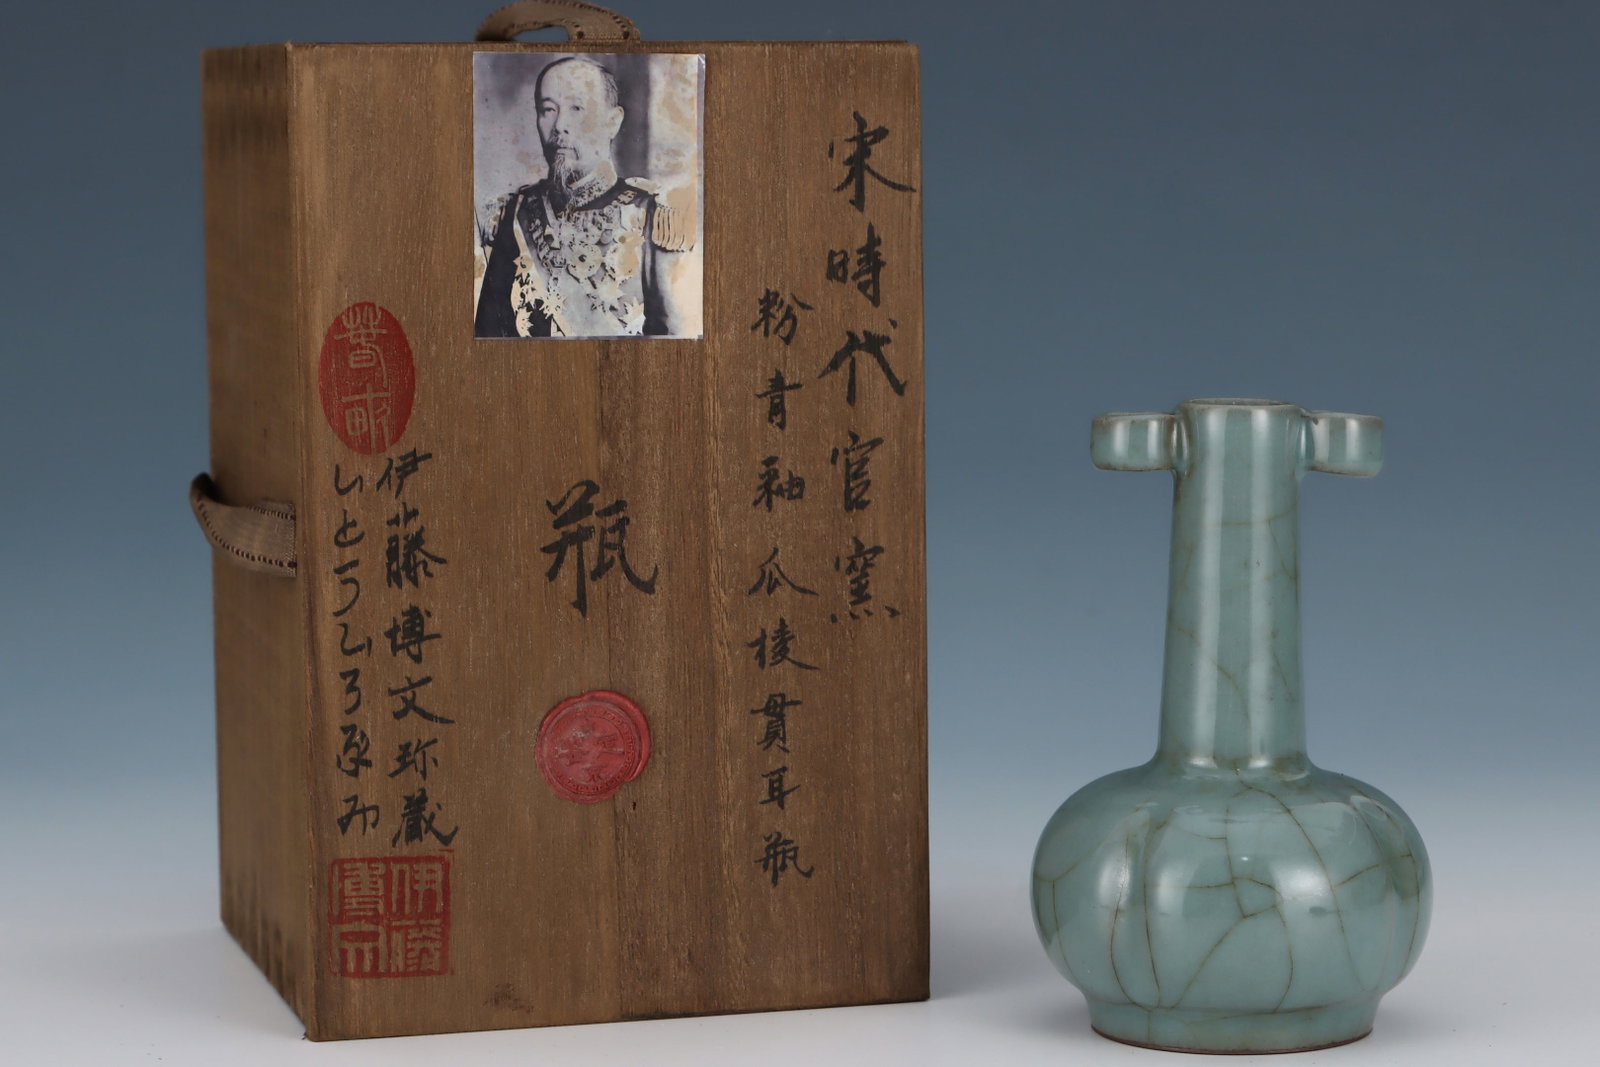 宋時代官窯
粉青釉瓜棱貫耳瓶
瓶
伊藤博文珎蔵
いとうひろぶみ
春畝
伊藤博